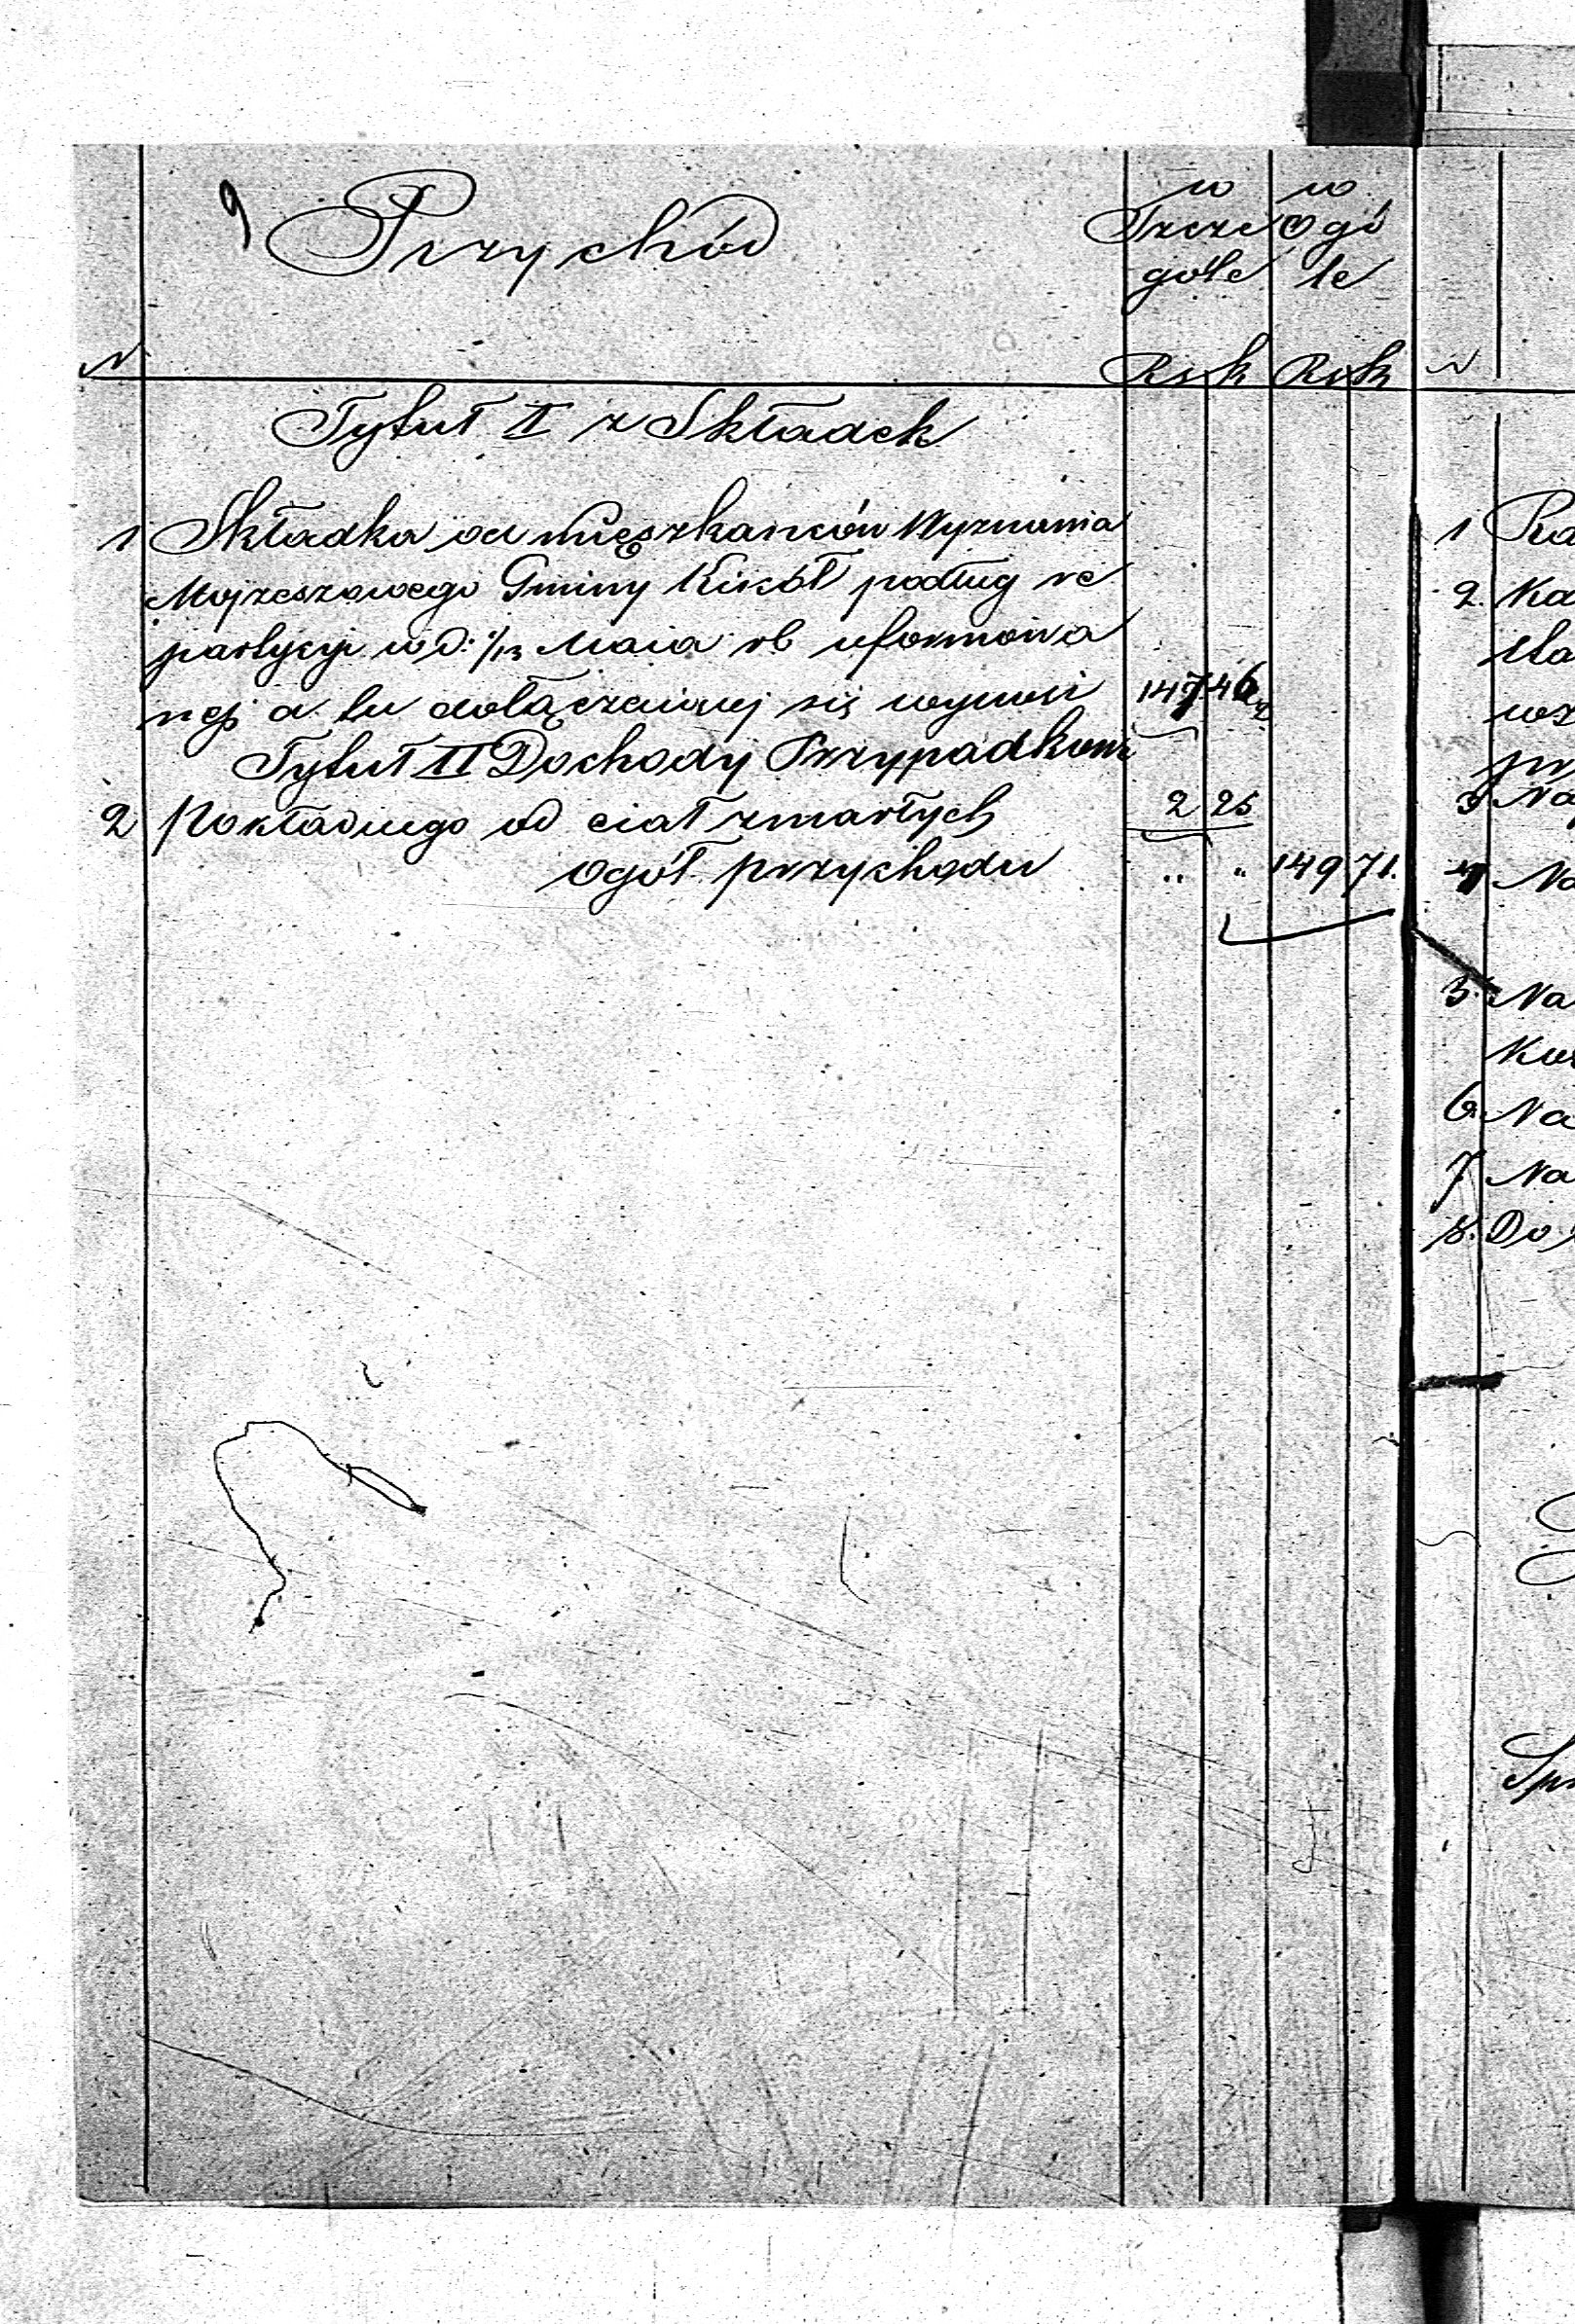 9 Przychód
w w
Szcze Ogó
góle le
N Rs k Rs k N
Tytuł II z Składek
1 Składka od mieszkańców Wyznania
Mojżeszowego Gminy Kikół podług re
partycyi w d: 1/13 Maia rb uformowa
nej a tu dołączaiącej się wynosi 147 46
Tytuł III Dochody Przypadkowe
2 Pokładnego od ciał zmarłych 2 25
Ogół przychodu " " 149 71.
1
2. Ka
wz
3 Na
4 Na
5. Na
6. Na
7 Na
8. Do